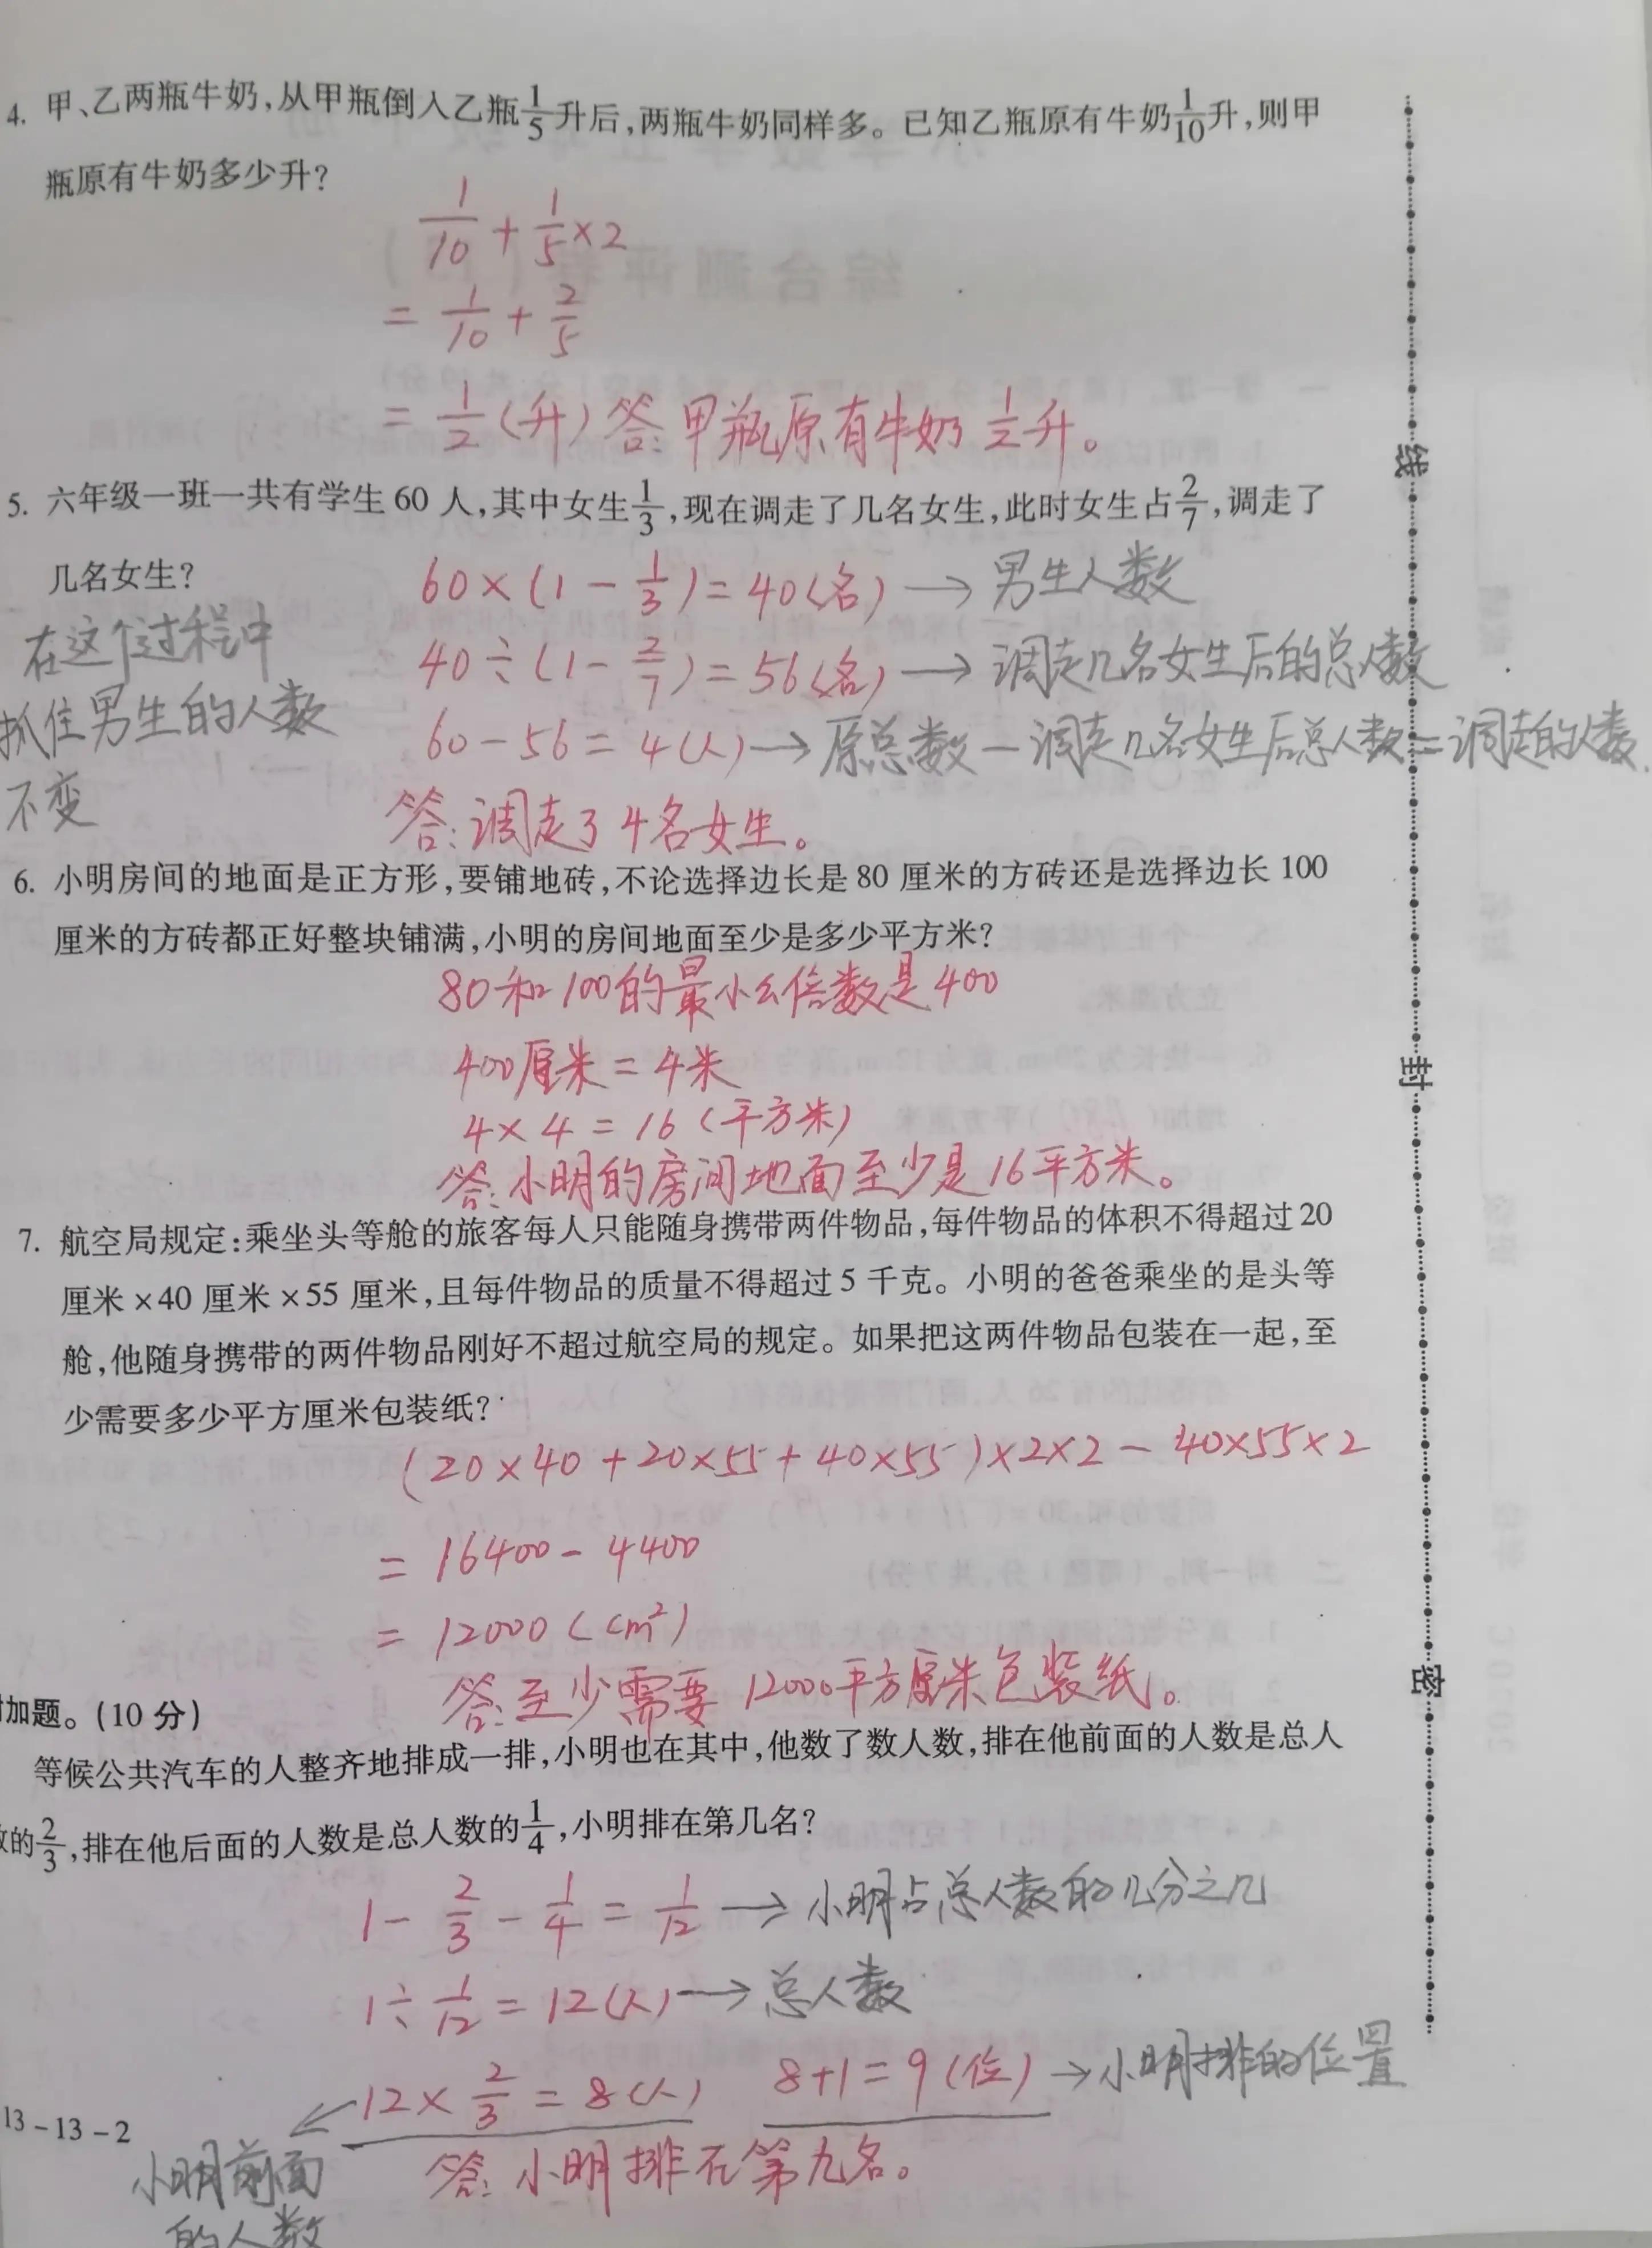 4. 甲、乙两瓶牛奶,从甲瓶倒入乙瓶1/5升后,两瓶牛奶同样多。已知乙瓶原有牛奶1/10升,则甲
瓶原有牛奶多少升?
1/10 + 1/5 × 2
= 1/10 + 2/5
= 1/2 (升) 答: 甲瓶原有牛奶 1/2 升。
5. 六年级一班一共有学生 60 人,其中女生1/3,现在调走了几名女生,此时女生占2/7,调走了
几名女生?
60 × (1 - 1/3) = 40 (名) → 男生人数
在这个过程中
40 ÷ (1 - 2/7) = 56 (名) → 调走几名女生后的总人数
抓住男生的人数
60 - 56 = 4 (人) → 原总数 - 调走几名女生后总人数 = 调走的人数.
不变
答: 调走了 4 名女生。
6. 小明房间的地面是正方形,要铺地砖,不论选择边长是 80 厘米的方砖还是选择边长 100
厘米的方砖都正好整块铺满,小明的房间地面至少是多少平方米?
80 和 100 的最小公倍数是 400
400厘米 = 4米
4 × 4 = 16 (平方米)
答: 小明的房间地面至少是 16 平方米。
7. 航空局规定:乘坐头等舱的旅客每人只能随身携带两件物品,每件物品的体积不得超过 20
厘米 ×40 厘米 ×55 厘米,且每件物品的质量不得超过 5 千克。小明的爸爸乘坐的是头等
舱,他随身携带的两件物品刚好不超过航空局的规定。如果把这两件物品包装在一起,至
少需要多少平方厘米包装纸?
(20 × 40 + 20 × 55 + 40 × 55) × 2 × 2 - 40 × 55 × 2
= 16400 - 4400
= 12000 (cm²)
答: 至少需要 12000 平方厘米包装纸。
加题。(10 分)
等候公共汽车的人整齐地排成一排,小明也在其中,他数了数人数,排在他前面的人数是总人
数的2/3,排在他后面的人数是总人数的1/4,小明排在第几名?
1 - 2/3 - 1/4 = 1/12 → 小明占总人数的几分之几
1 ÷ 1/12 = 12 (人) → 总人数
12 × 2/3 = 8 (人) 8+1 = 9 (位) → 小明排的位置
13-13-2
小明前面
的人数
答: 小明排在第九名。
线
封
密